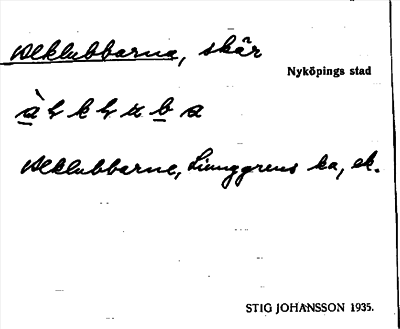 Alklubbarna, skär
Nyköpings stad
Alklubbarne, Ljunggrens ka, ek.
STIG JOHANSSON 1935.